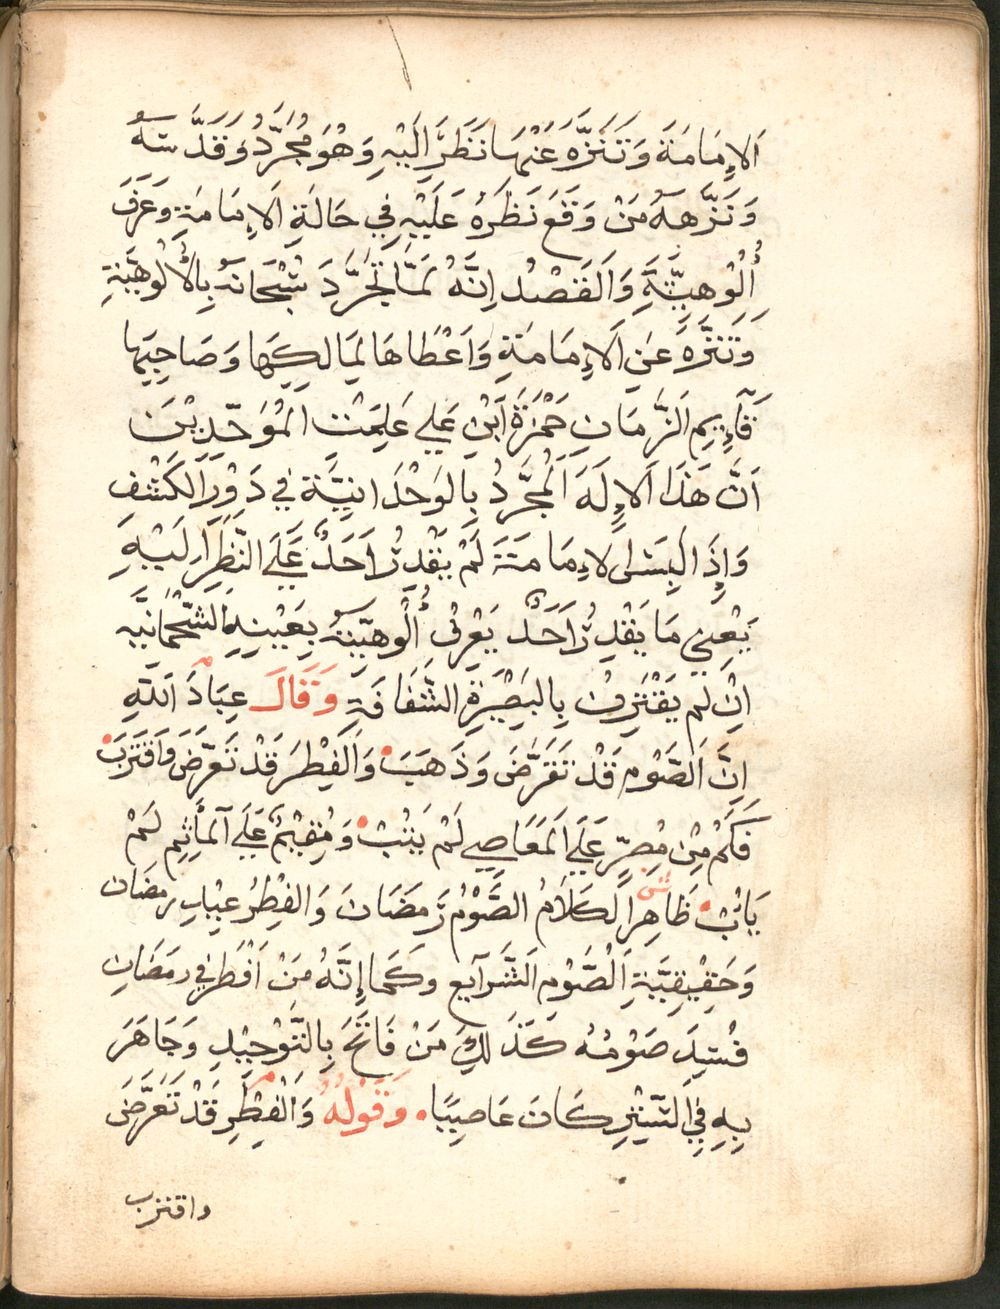 اَلاِمَامَةَ وَتَنَزَّهَ عَنْهَا نَظَرَ اِلَيْهِ وَهُوَ مُجَرَّدُ وَقَدَّسَهُ
وَنَزَّهَهُ مَنْ وَقَعَ نَظَرَهُ عَلَيْهِ فِي حَالَةِ اَلاِمَامَةِ وَعَرَفَ
أُلْوهِيَّتَهَ وَالقَصْدُ اِنَّهُ لَمَّا تَجَرَّدَ سُبْحَانَهُ بِالْأُلوهِيَّةِ
وَتَنَزَّهَ عَنِ اَلاِمَامَةِ وَاَعْطَاهَا لِمَالِكِهَا وَصَاحِبِهَا
قَآءِيمِ الزَّمَانِ حَمْزَةَ اَبْنِ عَلي عَلِمَتْ المُوَحِّدِيْنَ
اَنَّ هَذَا اَلاِلَهَ اَلْمُجَرَّدُ بِالوَحْدَانِيَّة في دَوْرِ الكَشْفِ
وَاِذَ اَلبِسَ الاِمَامَةَ لَمْ يَقْدِرْ اَحَدْ عَلَي النَّظَرِ اِلَيْهِ
يَعْنِي مَا يَقْدِرُ اَحَدْ يَعْرِفْ أُلْوهِيَّتَهُ بِعَيْنِهِ الشَّحْمَانيَّه
اِنْ لَم يَقْتَرِفْ بِالبَصِيْرَةِ الشَّفَافَةِ وَقَالَ عِبَادَ اَللهِ
اِنَّ اَلصَّوْمَ قَدْ تَقَرَّضَ وَذَهَبَ وَاَلفِطْرَ قَدْ تَعَرَّضَ وَاقتَرَبَ
فَكَمْ مِنْ مُصِرٍّ عَلَي اَلمَعَاصِي لَمْ يَتُبْ وَمُقِيْمٌ عَلَي اَلمأَثِمِ لَمْ
يَاتُبْ ظَاهِرِ الكَلَامُ الصَّوْمُ رَمَضَانَ وَالفِطْرُ عِيْدِ رَمضَان
وَحَقِيْقِيَّةِ اَلصَّوْمِ اَلشَّرآيع وكَما اِنَّهُ مَنْ اَفْطَرَ في رمَضَانِ
فُسِدَ صَوْمُهُ كَذَلِكَ مَنْ فَاتَحَ بِالتَّوْحِيْدِ وَجَاهَرَ
بِهِ فِي السِّتْرِ كَانَ عَاصِيًا وَقَوْلهُ وَاَلْفِطْرِ قَدْ تَعَرَّضَ
واقترب